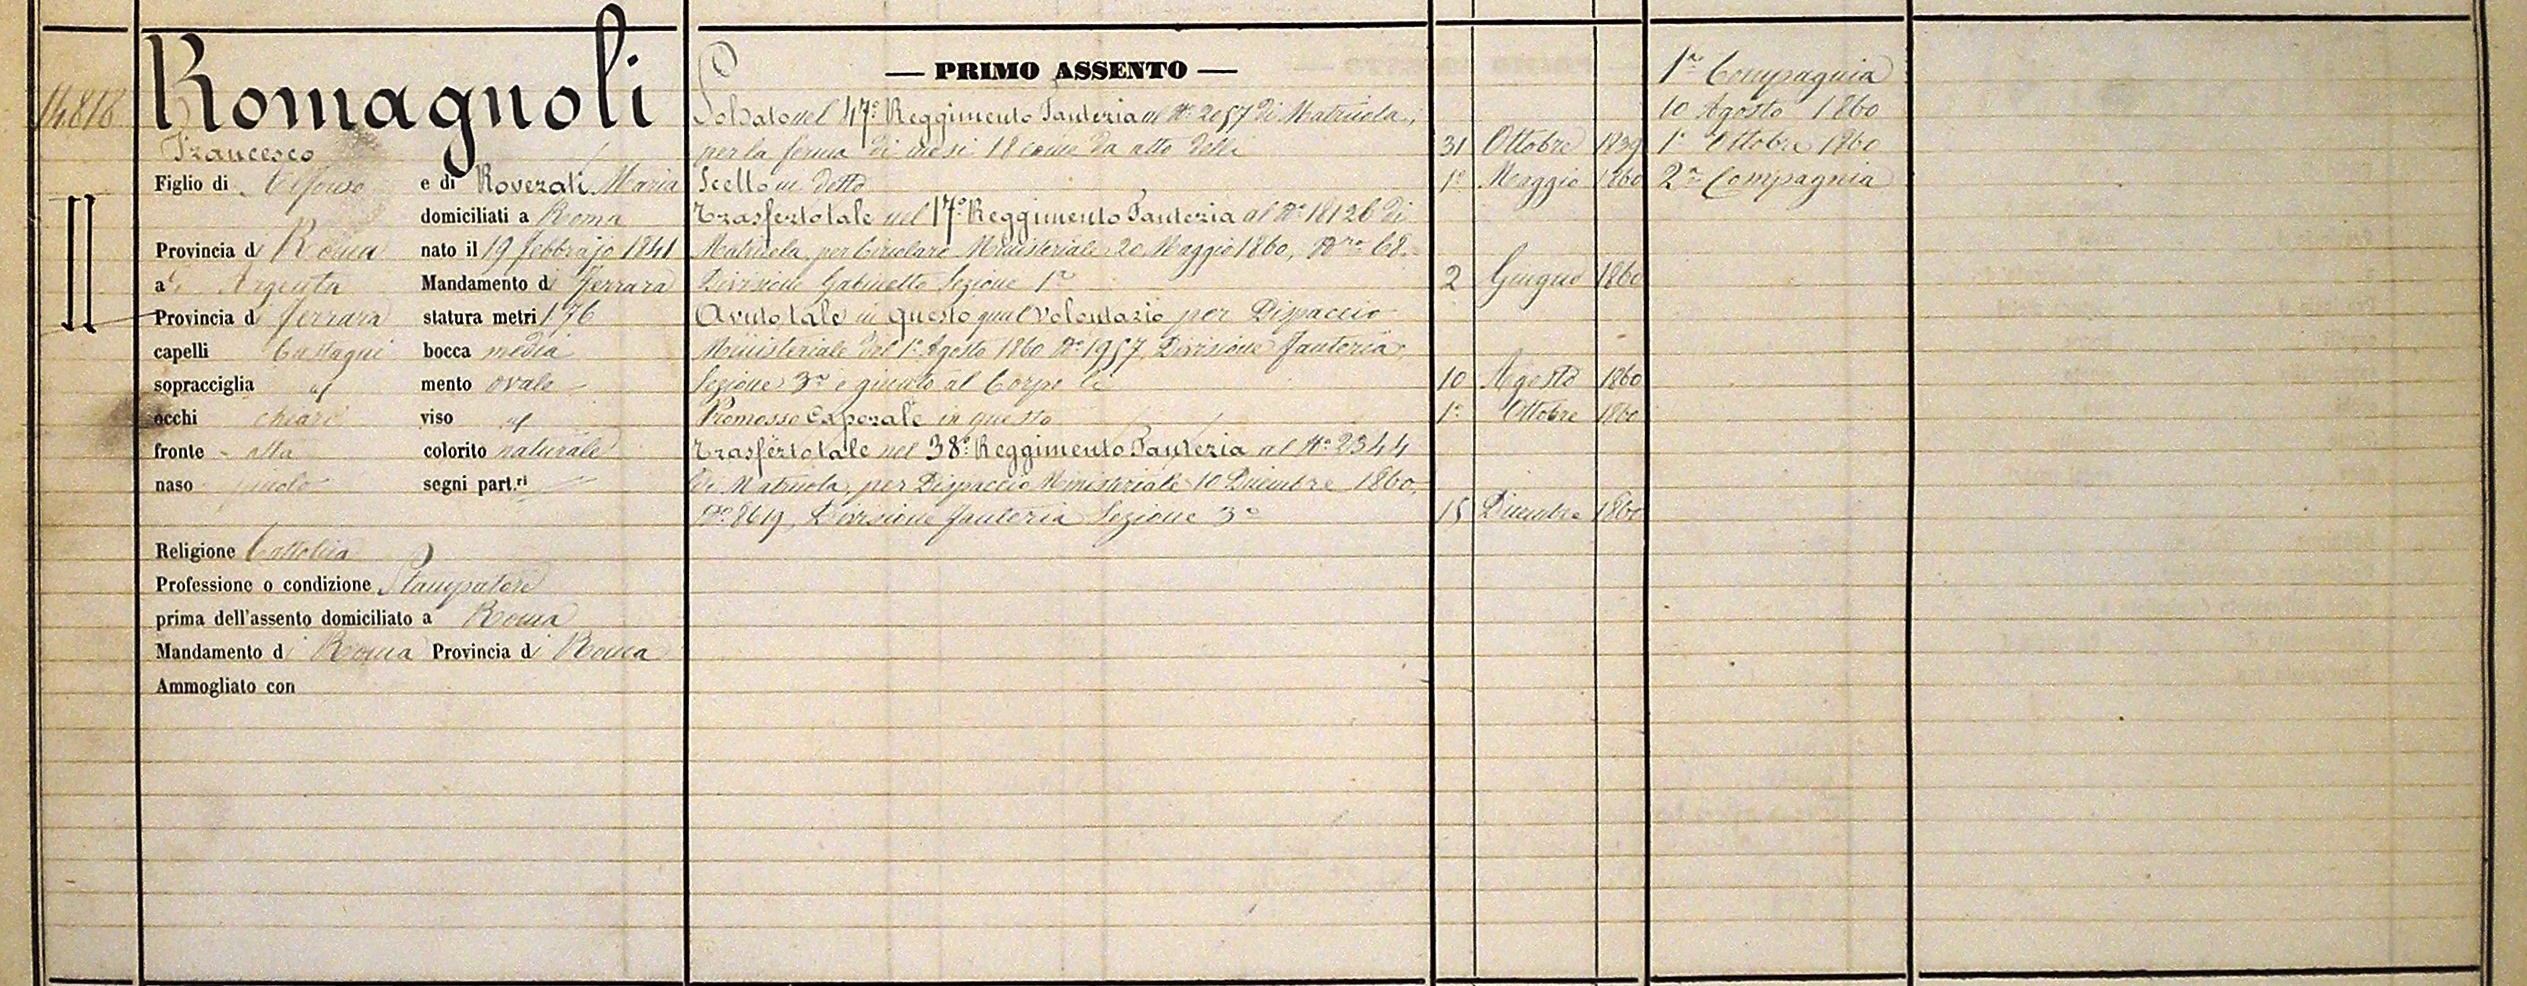 14818
Romagnoli
Francesco
Figlio di Alfonso e di Roverati Maria
domiciliati a Roma
Provincia di Roma nato il 19 febbrajo 1841
a Argenta Mandamento di Ferrara
Provincia di Ferrara statura metri 1 76
capelli Castagni bocca media
sopracciglia id mento ovale
occhi chiari viso id
fronte alta colorito naturale
naso segni part.ri
Religione Cattolica
Professione o condizione Stampatore
prima dell'assento domiciliato a Roma
Mandamento di Roma Provincia di Roma
Ammogliato con
— PRIMO ASSENTO —
Soldato nel 47º Reggimento Fanteria al Nº 2057 di Matricola,
per la ferma di mesi 18 come da atto delli 31 Ottobre 1859
Scelto in detto 1º Maggio 1860
Trasferto tale nel 17º Reggimento Fanteria al Nº 18126 di
Matricola, per Circolare Ministeriale 20 Maggio 1860, Nro 68.
Divisione Gabinetto Sezione 1ª 2 Giugno 1860
Avuto tale in questo qual Volontario per Dispaccio
Ministeriale del 1º Agosto 1860 Nº 1957 Divisione Fanteria,
Sezione 3ª e giunto al Corpo li 10 Agosto 1860
Promosso Caporale in questo 1º Ottobre 1860
Trasferto tale nel 38º Reggimento Fanteria al Nº 2344
di Matricola, per Dispaccio Ministeriale 10 Dicembre 1860,
Nº 8619, Divisione Fanteria Sezione 3ª 15 Dicembre 1860
1ª Compagnia
10 Agosto 1860
1º Ottobre 1860
2ª Compagnia